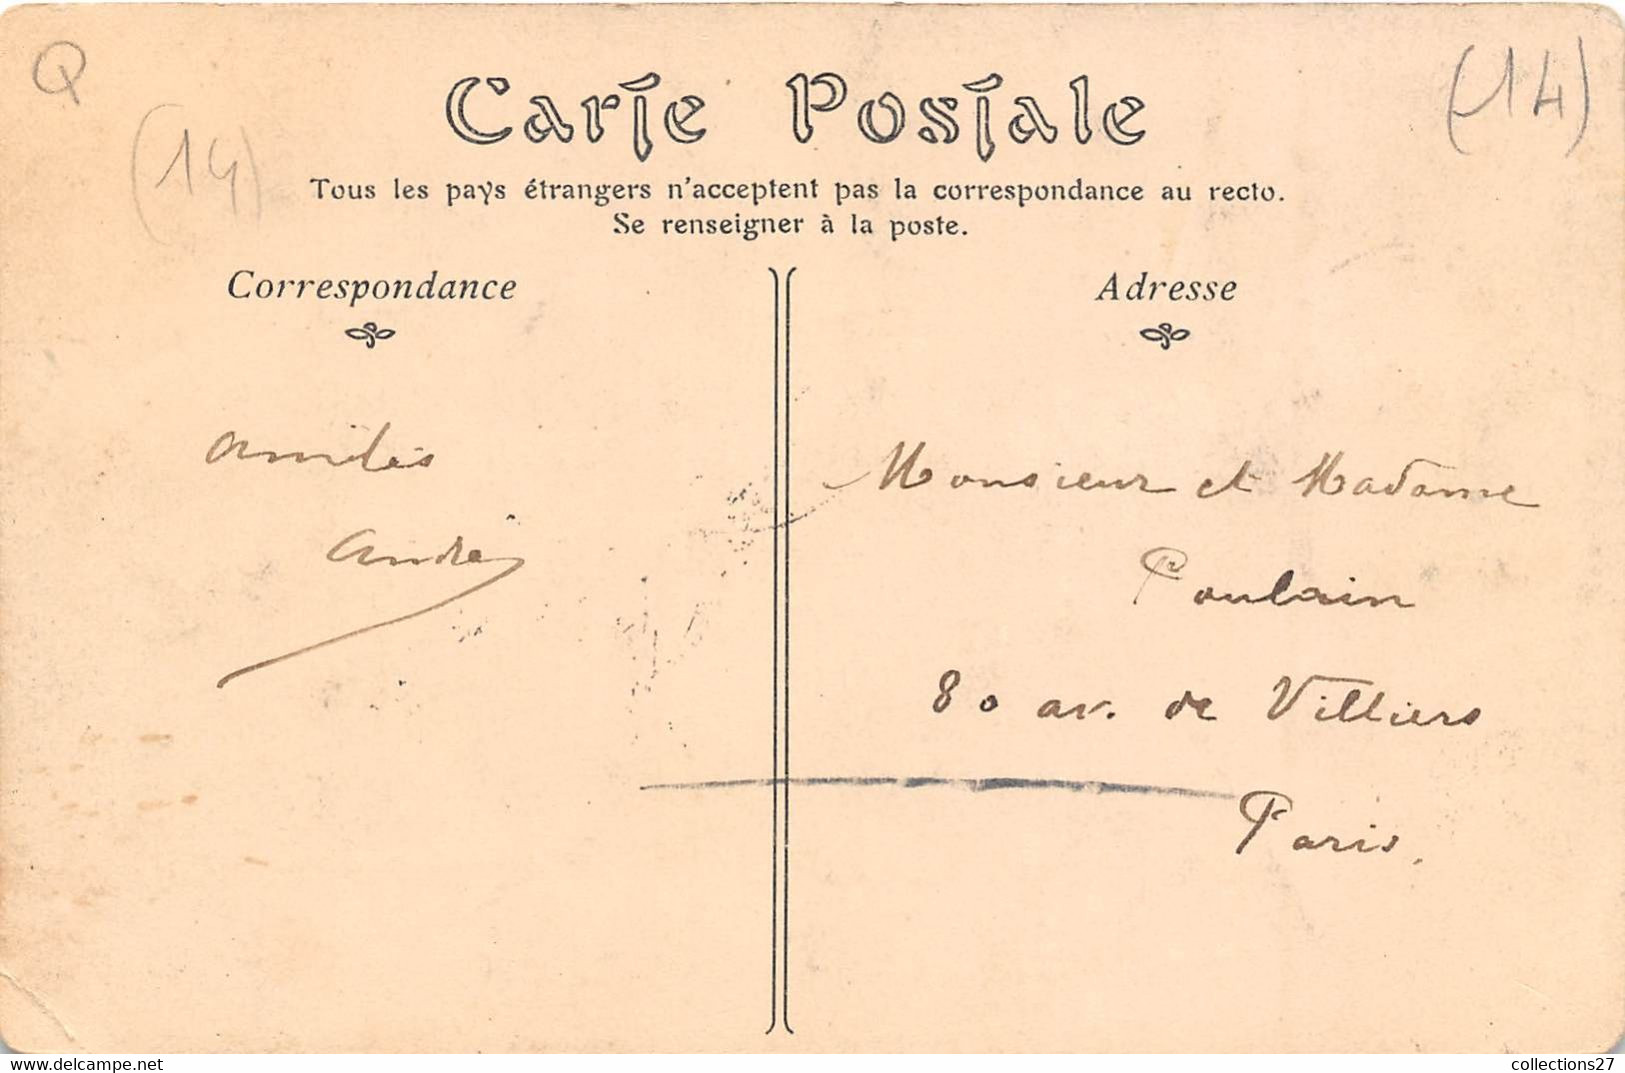 Q
(14)
(14)
Carte Postale
Tous les pays étrangers n'acceptent pas la correspondance au recto.
Se renseigner à la poste.
Correspondance
Amitiés
André
Adresse
Monsieur et Madame
Poulain
80 av. de Villiers
Paris.
www.delcampe.net
collections27